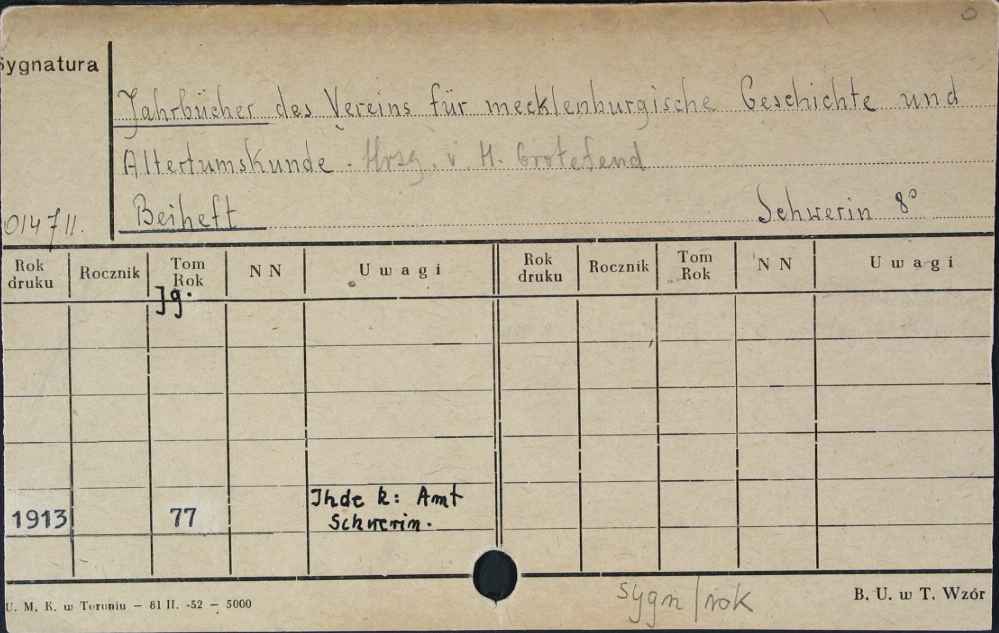 0
Sygnatura
Jahrbücher des Vereins für mecklenburgische Geschichte und
Altertumskunde. Hrsg. v. H. Grotefend
014711. Beiheft Schwerin 8°
Rok druku Rocznik Tom Rok NN Uwagi Rok druku Rocznik Tom Rok NN Uwagi
Jg.
1913 77 Ihde k: Amt
Schwerin.
sygn/rok
U. M. K. w Toruniu – 81 II. -52 – 5000 B. U. w T. Wzór